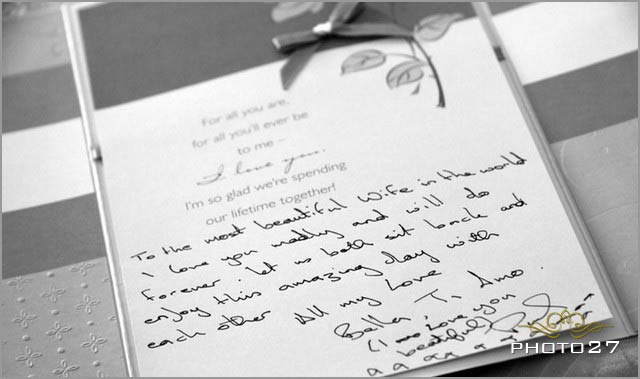 For all you are,
for all you'll ever be
to me –
I love you.
I'm so glad we're spending
our lifetime together!
To the most beautiful Wife in the world
I love you madly and will do
Forever. let us both sit back and
enjoy this amazing day with
each other All my Love
Bella, Ti Amo.
(I Love you
beautiful)
PHOTO27